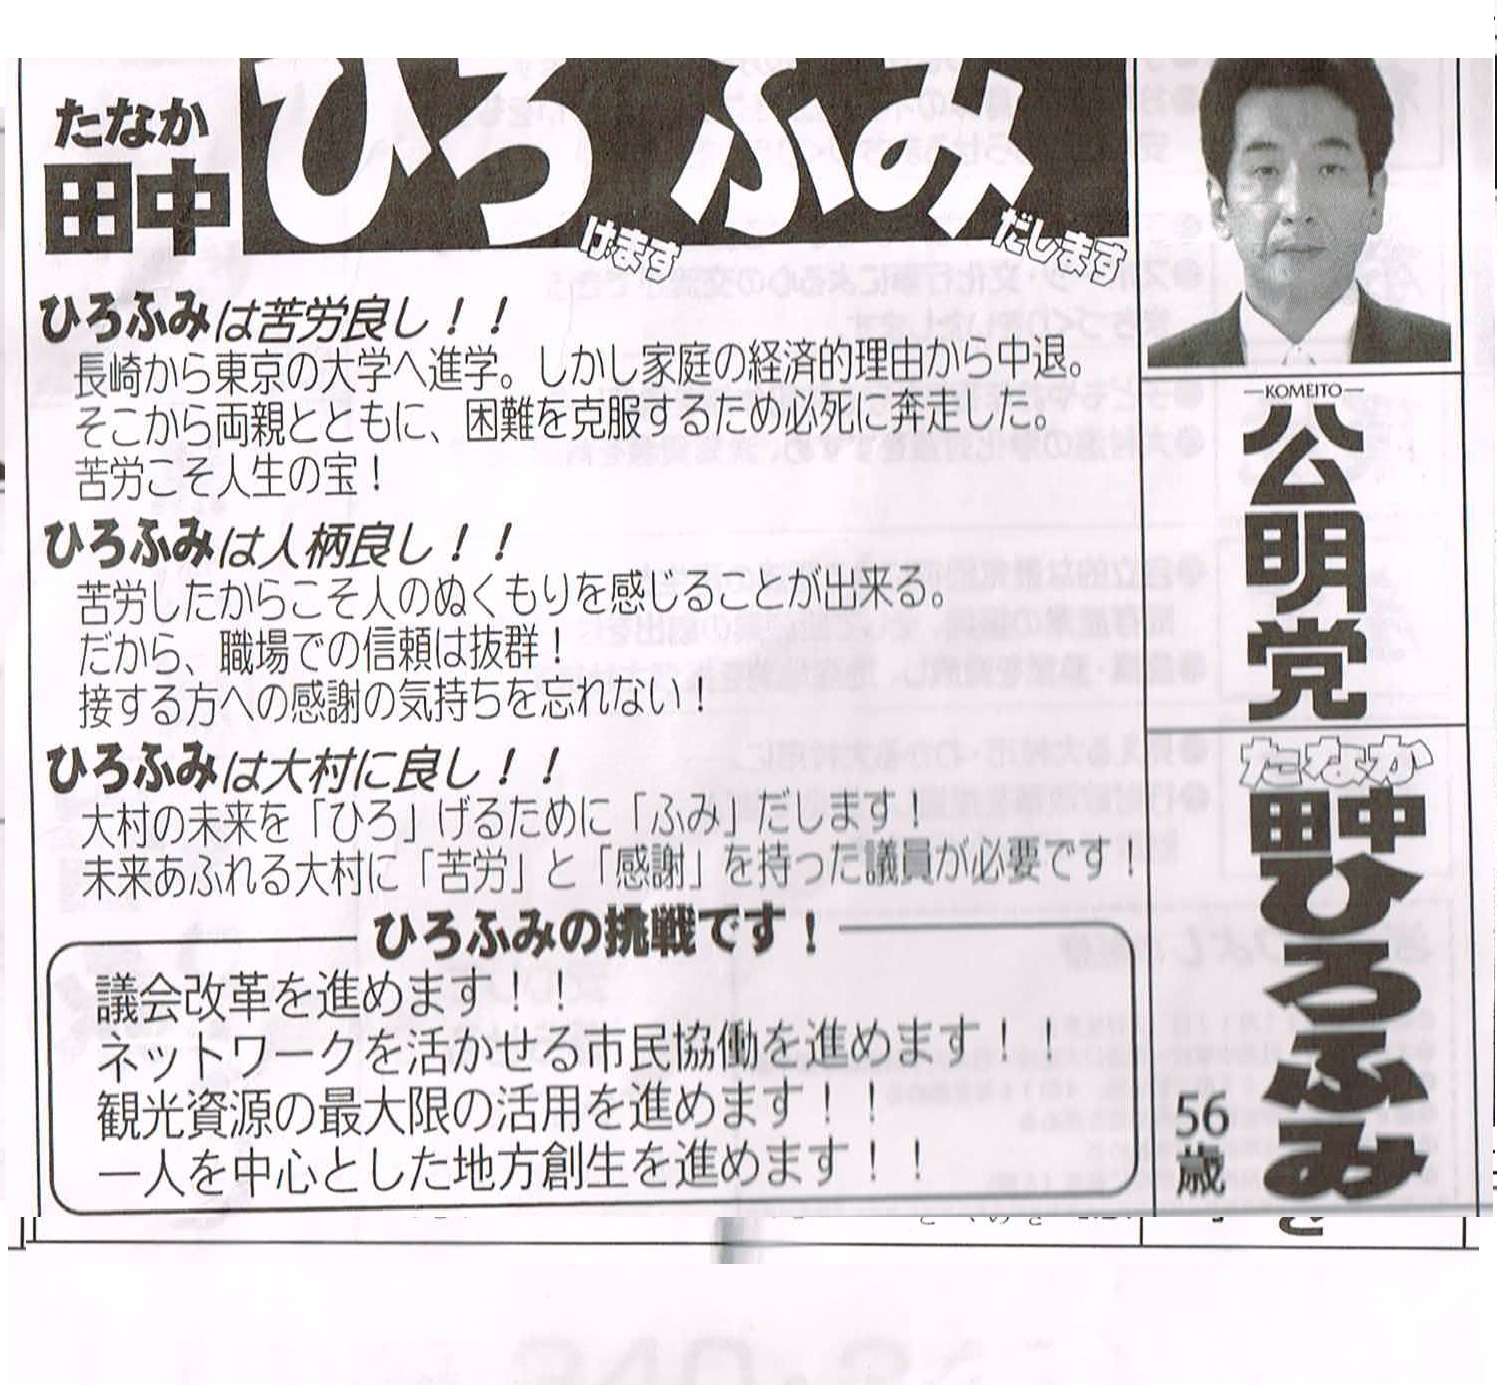 たなか
田中
ひろ ふみ
けます
だします
ひろふみは苦労良し！！
長崎から東京の大学へ進学。しかし家庭の経済的理由から中退。
そこから両親とともに、困難を克服するため必死に奔走した。
苦労こそ人生の宝！
ひろふみは人柄良し！！
苦労したからこそ人のぬくもりを感じることが出来る。
だから、職場での信頼は抜群！
接する方への感謝の気持ちを忘れない！
ひろふみは大村に良し！！
大村の未来を「ひろ」げるために「ふみ」だします！
未来あふれる大村に「苦労」と「感謝」を持った議員が必要です！
ひろふみの挑戦です！
議会改革を進めます！！
ネットワークを活かせる市民協働を進めます！！
観光資源の最大限の活用を進めます！！
一人を中心とした地方創生を進めます！！
―KOMEITO―
公明党
たなか
田中ひろふみ
56歳